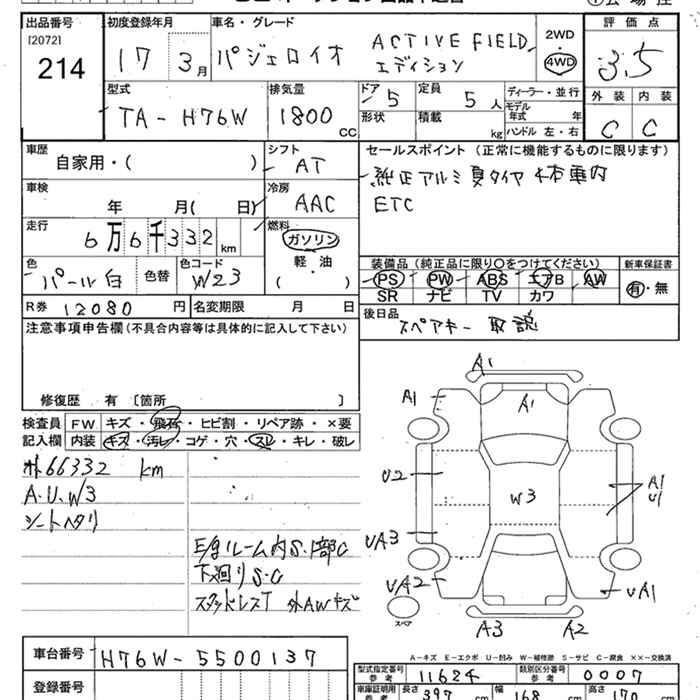 出品番号 初度登録年月 車名・グレード 評価点
[2072]
214
17 3月
パジェロイオ ACTIVE FIELD
エディション
2WD
4WD
3.5
型式 排気量 ドア 定員 ディーラー・並行 外装 内装
TA-H76W 1800 CC 5 5人 モデル年式 年
形状 積載 kg ハンドル 左・右 C C
車歴 シフト セールスポイント(正常に機能するものに限ります)
自家用・( ) AT 純正アルミ夏タイヤ4本車内
車検 冷房 ETC
年 月( 日) AAC
走行 燃料
6万6千332km ガソリン
軽・油
( )
色 色替 色コード
パール白 W23
装備品(純正品に限り〇をつけてください) 新車保証書
PS PW ABS エアB AW 有・無
SR ナビ TV カワ
R券 12080円 名変期限 月 日
後日品 スペアキー 取説
注意事項申告欄(不具合内容等は具体的に記入して下さい)
修復歴 有 〔箇所 〕
検査員 FW キズ・飛石・ヒビ割・リペア跡・×要
記入欄 内装 キズ・汚レ・コゲ・穴・スレ・キレ・破レ
66332 km
A.U.W3
シートヘタリ
E/gルーム内S.1部C
下廻りS.C
スタッドレスT 外AWキズ
A1
A1
A1
U2
W3
A1
U1
UA3
UA2
UA1
スペア
A3 A2
A-キズ E-エクボ U-凹み W-補修跡 S-サビ C-腐食 ××-交換済
車台番号 H76W-5500137
登録番号
型式指定番号 参考 11624 類別区分番号 参考 0007
車庫証明用 参考 長さ 397cm 幅 168cm 高さ 170cm